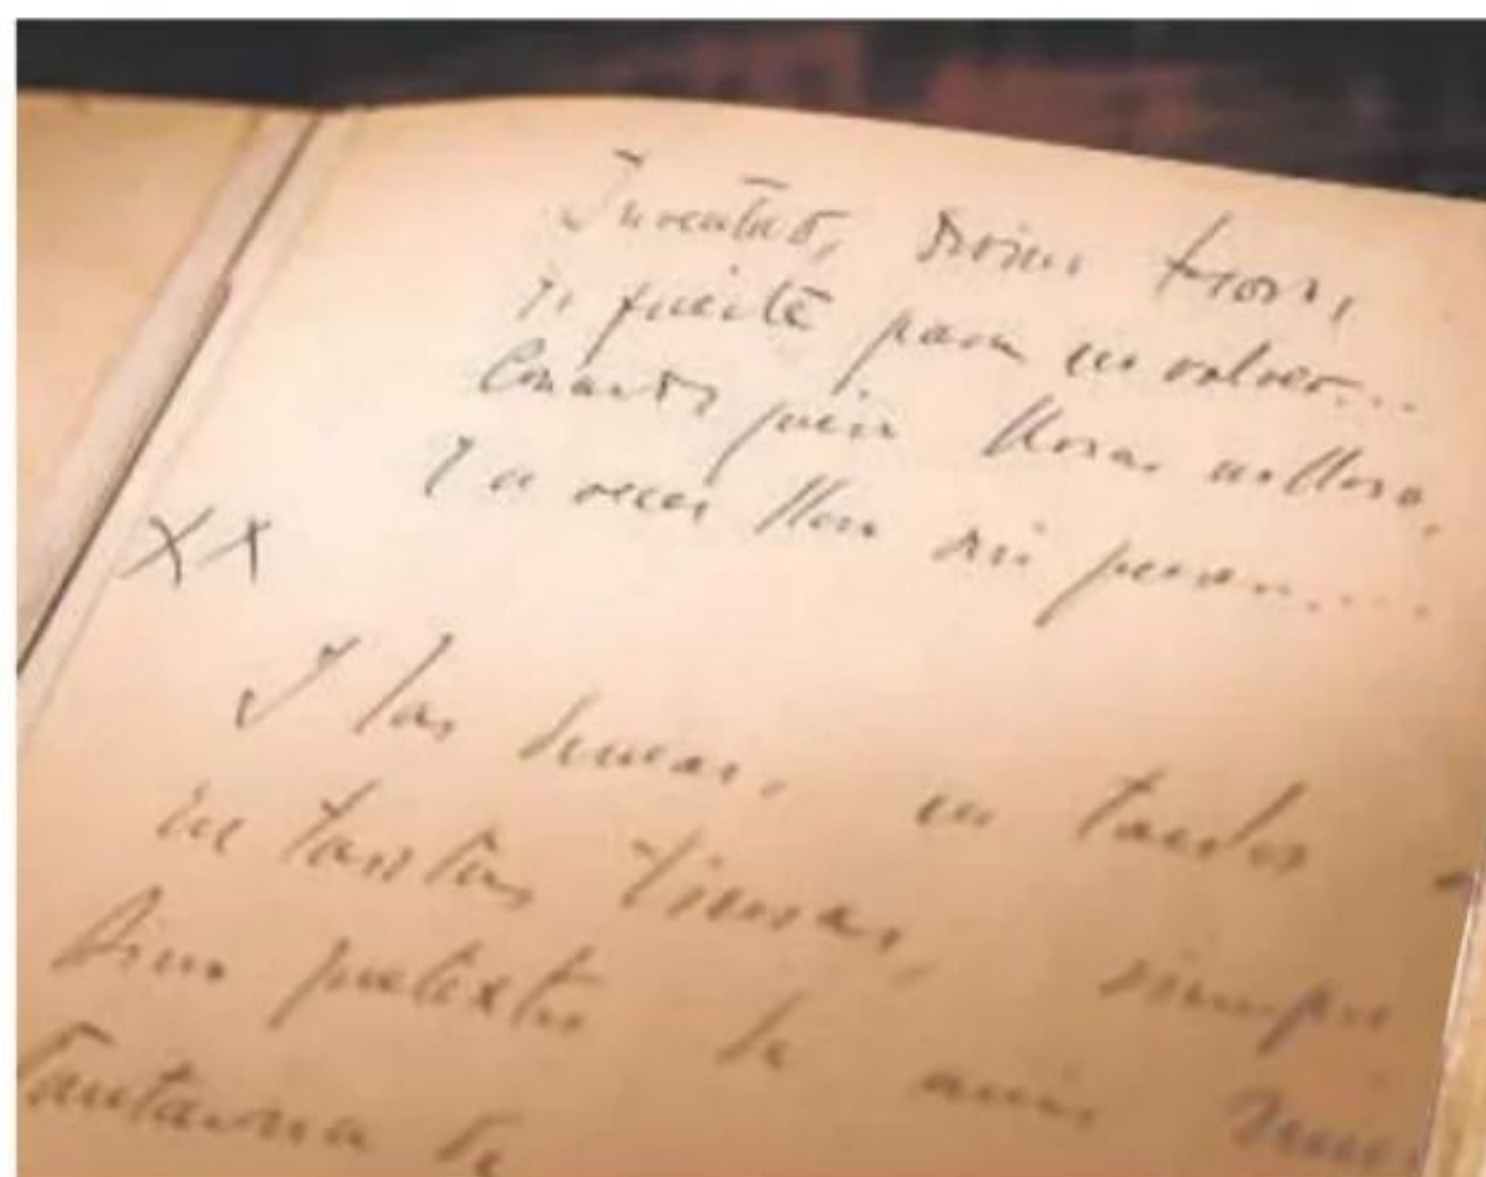 Juventud, divino tesoro,
ya fuiste para no volver...
Cuando quiero llorar no lloro,
Y a veces lloro sin querer....
XX
Y las demas, en tantos
en tantas tierras, siempre
Sino pretextos de mis
fantasma de